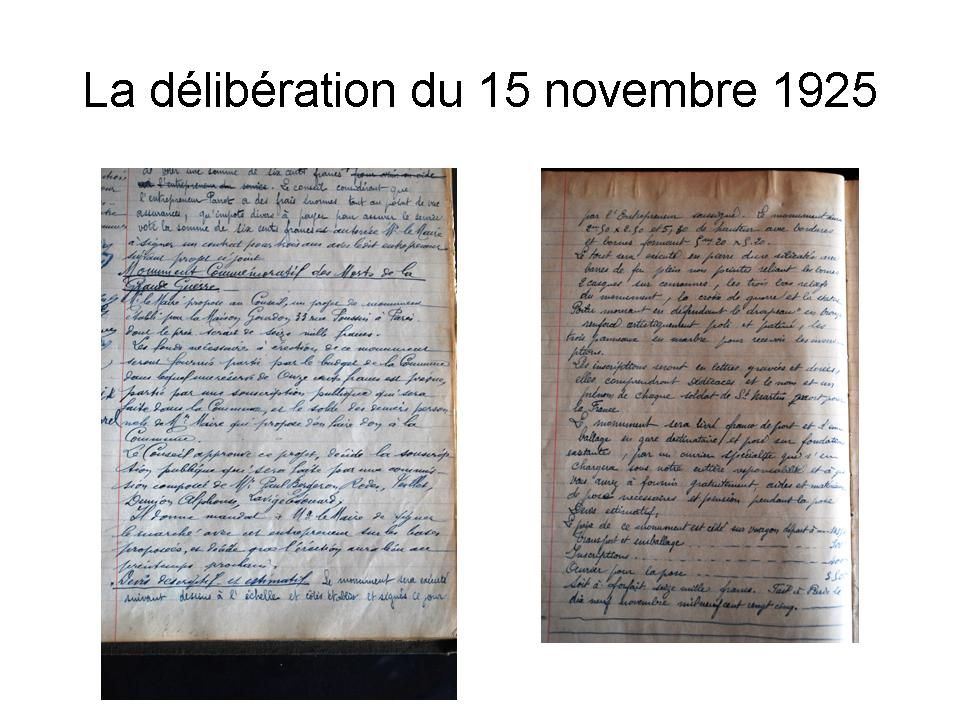 La délibération du 15 novembre 1925
de voter une somme de six cents francs
l'entrepreneur du service. Le conseil considérant que
l'entrepreneur Parot a des frais énormes tout au point de vue
assurances, qu'impôts divers à payer pour assurer le service
vote la somme de six cents francs et autorise Mr le Maire
à signer un contrat pour trois ans avec
suivant projet ci-joint.
Monument Commémoratif des Morts de la
Grande Guerre
Mr le Maire propose au Conseil, un projet de monument
établi par la Maison Gourdon 33 rue Poussin à Paris
dont le prix serait de seize mille francs.
Les fonds nécessaires à érection de ce monument
seront fournis partie par le budget de la Commune
dans lequel une réserve de Onze cents francs est prévue,
partie par une souscription publique qui sera
faite dans la Commune, et le solde des deniers person
nels de Mr Maire qui propose d'en faire don à la
Commune.
Le Conseil approuve ce projet, décide la souscrip-
tion publique qui sera faite par une commis-
sion composée de Mrs Paul Bergeron, Rodes,
Alphonse,
Il donne mandat à Mr le Maire de signer
le marché avec cet entrepreneur sur les bases
proposées, et décide que l'érection aura lieu au
printemps prochain.
Devis descriptif et estimatif Le monument sera exécuté
suivant dessins à l'échelle et côtés établis et signés ce jour
par l'Entrepreneur soussigné. Le monument aura
2m50 x 2.50 et 5,80 de hauteur avec bordures
et bornes formant 5m20 x 5.20.
Le tout sera exécuté en pierre dure avec
barres de fer plein non peintes reliant les bornes
2 casques sur couronnes, les trois
du monument, la croix de guerre et la
Poilu mourant en défendant le drapeau en bronze
artistiquement poli et patiné, les
trois panneaux en marbre pour recevoir les inscrip-
ptions.
Les inscriptions seront en lettres gravées et dorées,
elles comprendront dédicaces et le nom et un
prénom de chaque soldat de St Martin mort pour
la France
Le monument sera livré franco de port et d'em
ballage en gare destinataire et posé sur fondation
existante, par un ouvrier spécialiste qui s'en
chargera sous notre entière responsabilité et à qui
vous aurez à fournir gratuitement, aides et matériaux
de pose nécessaires et pension pendant la pose
Devis estimatif.
Le prix de ce monument est cédé sur wagon départ à
Transport et emballage
Inscriptions
Ouvrier pour la pose
Soit à forfait seize mille francs. Fait à Paris le
dix neuf novembre mil neuf cent vingt cinq.